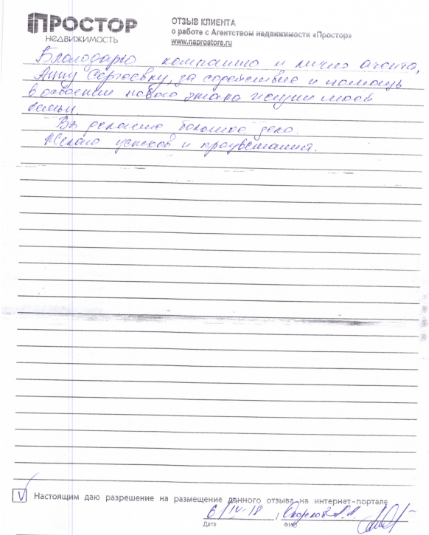 ПРОСТОР
НЕДВИЖИМОСТЬ
ОТЗЫВ КЛИЕНТА
о работе с Агентством недвижимости «Простор»
www.naprostore.ru
Благодарю компанию и лично агента,
Анну Сергеевну, за содействие и помощь
в освоении нового этапа жизни моей
семьи.
Вы делаете большое дело.
Желаю успехов и процветания.
V Настоящим даю разрешение на размещение данного отзыва на интернет-портале
6/IV-18
Дата
ФИО